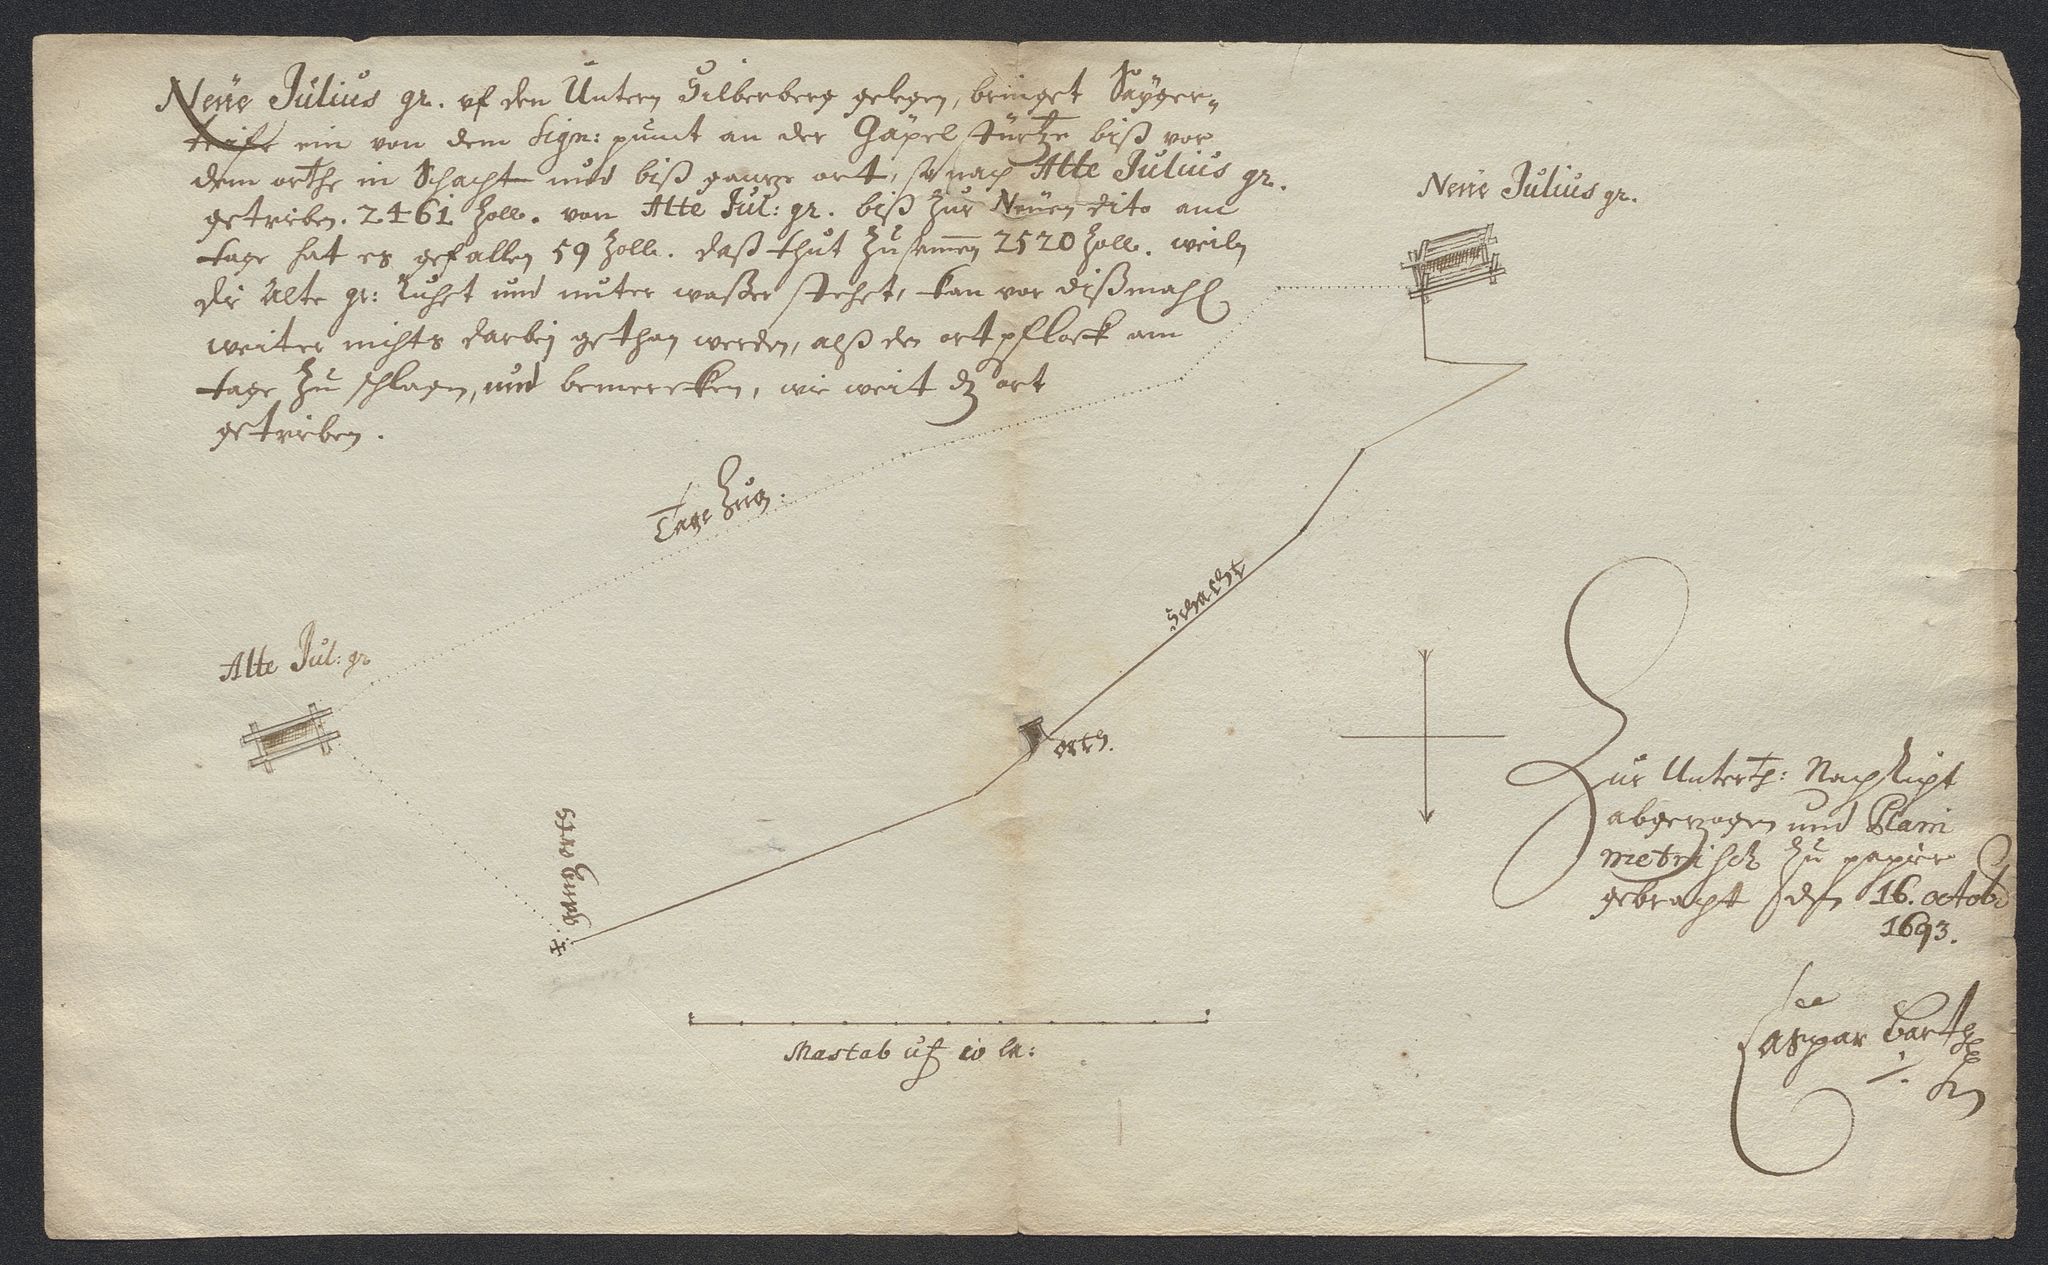 Neüe Julius gr. uf den Untern Silberberg gelegen, bringet Säyger=
teüfe ein von dem Sign: punct an der Gäpel stürtze biß vor
dem orthe in Schacht und biß gantze ort, so nach Alte Julius gr.
getrieben. 2461 Zolle. von Alte Jul: gr. biß zur Neüen dito am
tage hat es gefallen 59 Zolle. daß thut zusamen 2520 Zolle. weiln
die Alte gr: Ruhet und unter waßer stehet, kan vor dißmahl
weiter nichts darbey gethan werden, alß den ort pflock am
tage zu schlagen, und bemercken, wie weit dz ort
getrieben.
Neüe Julius gr.
Tage Zug.
Schacht
Alte Jul: gr
orth.
gantz orts
Mastab uf 10 la:
Zur Unterth: Nachricht
abgezogen und Plani
metrisch zu papier
gebracht den 16. octob:
1693.
Caspar Barth